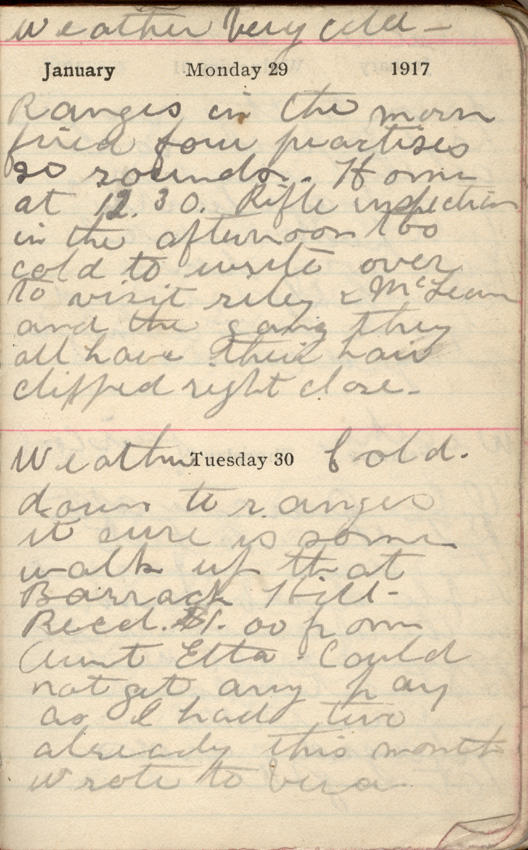 Weather Very Cold -
January Monday 29 1917
Ranges in the morn
fired four practises
20 rounds. Home
at 12.30. Rifle inspection
in the afternoon too
cold to write over
to visit riley & McLean
and the gang they
all have their hair
clipped right close.
Weather Tuesday 30 Cold.
down to ranges
it sure is some
walk up that
Barrack Hill -
Recd. $1.00 from
Aunt Etta. Could
not get any pay
as I had two
already this month
wrote to Vera